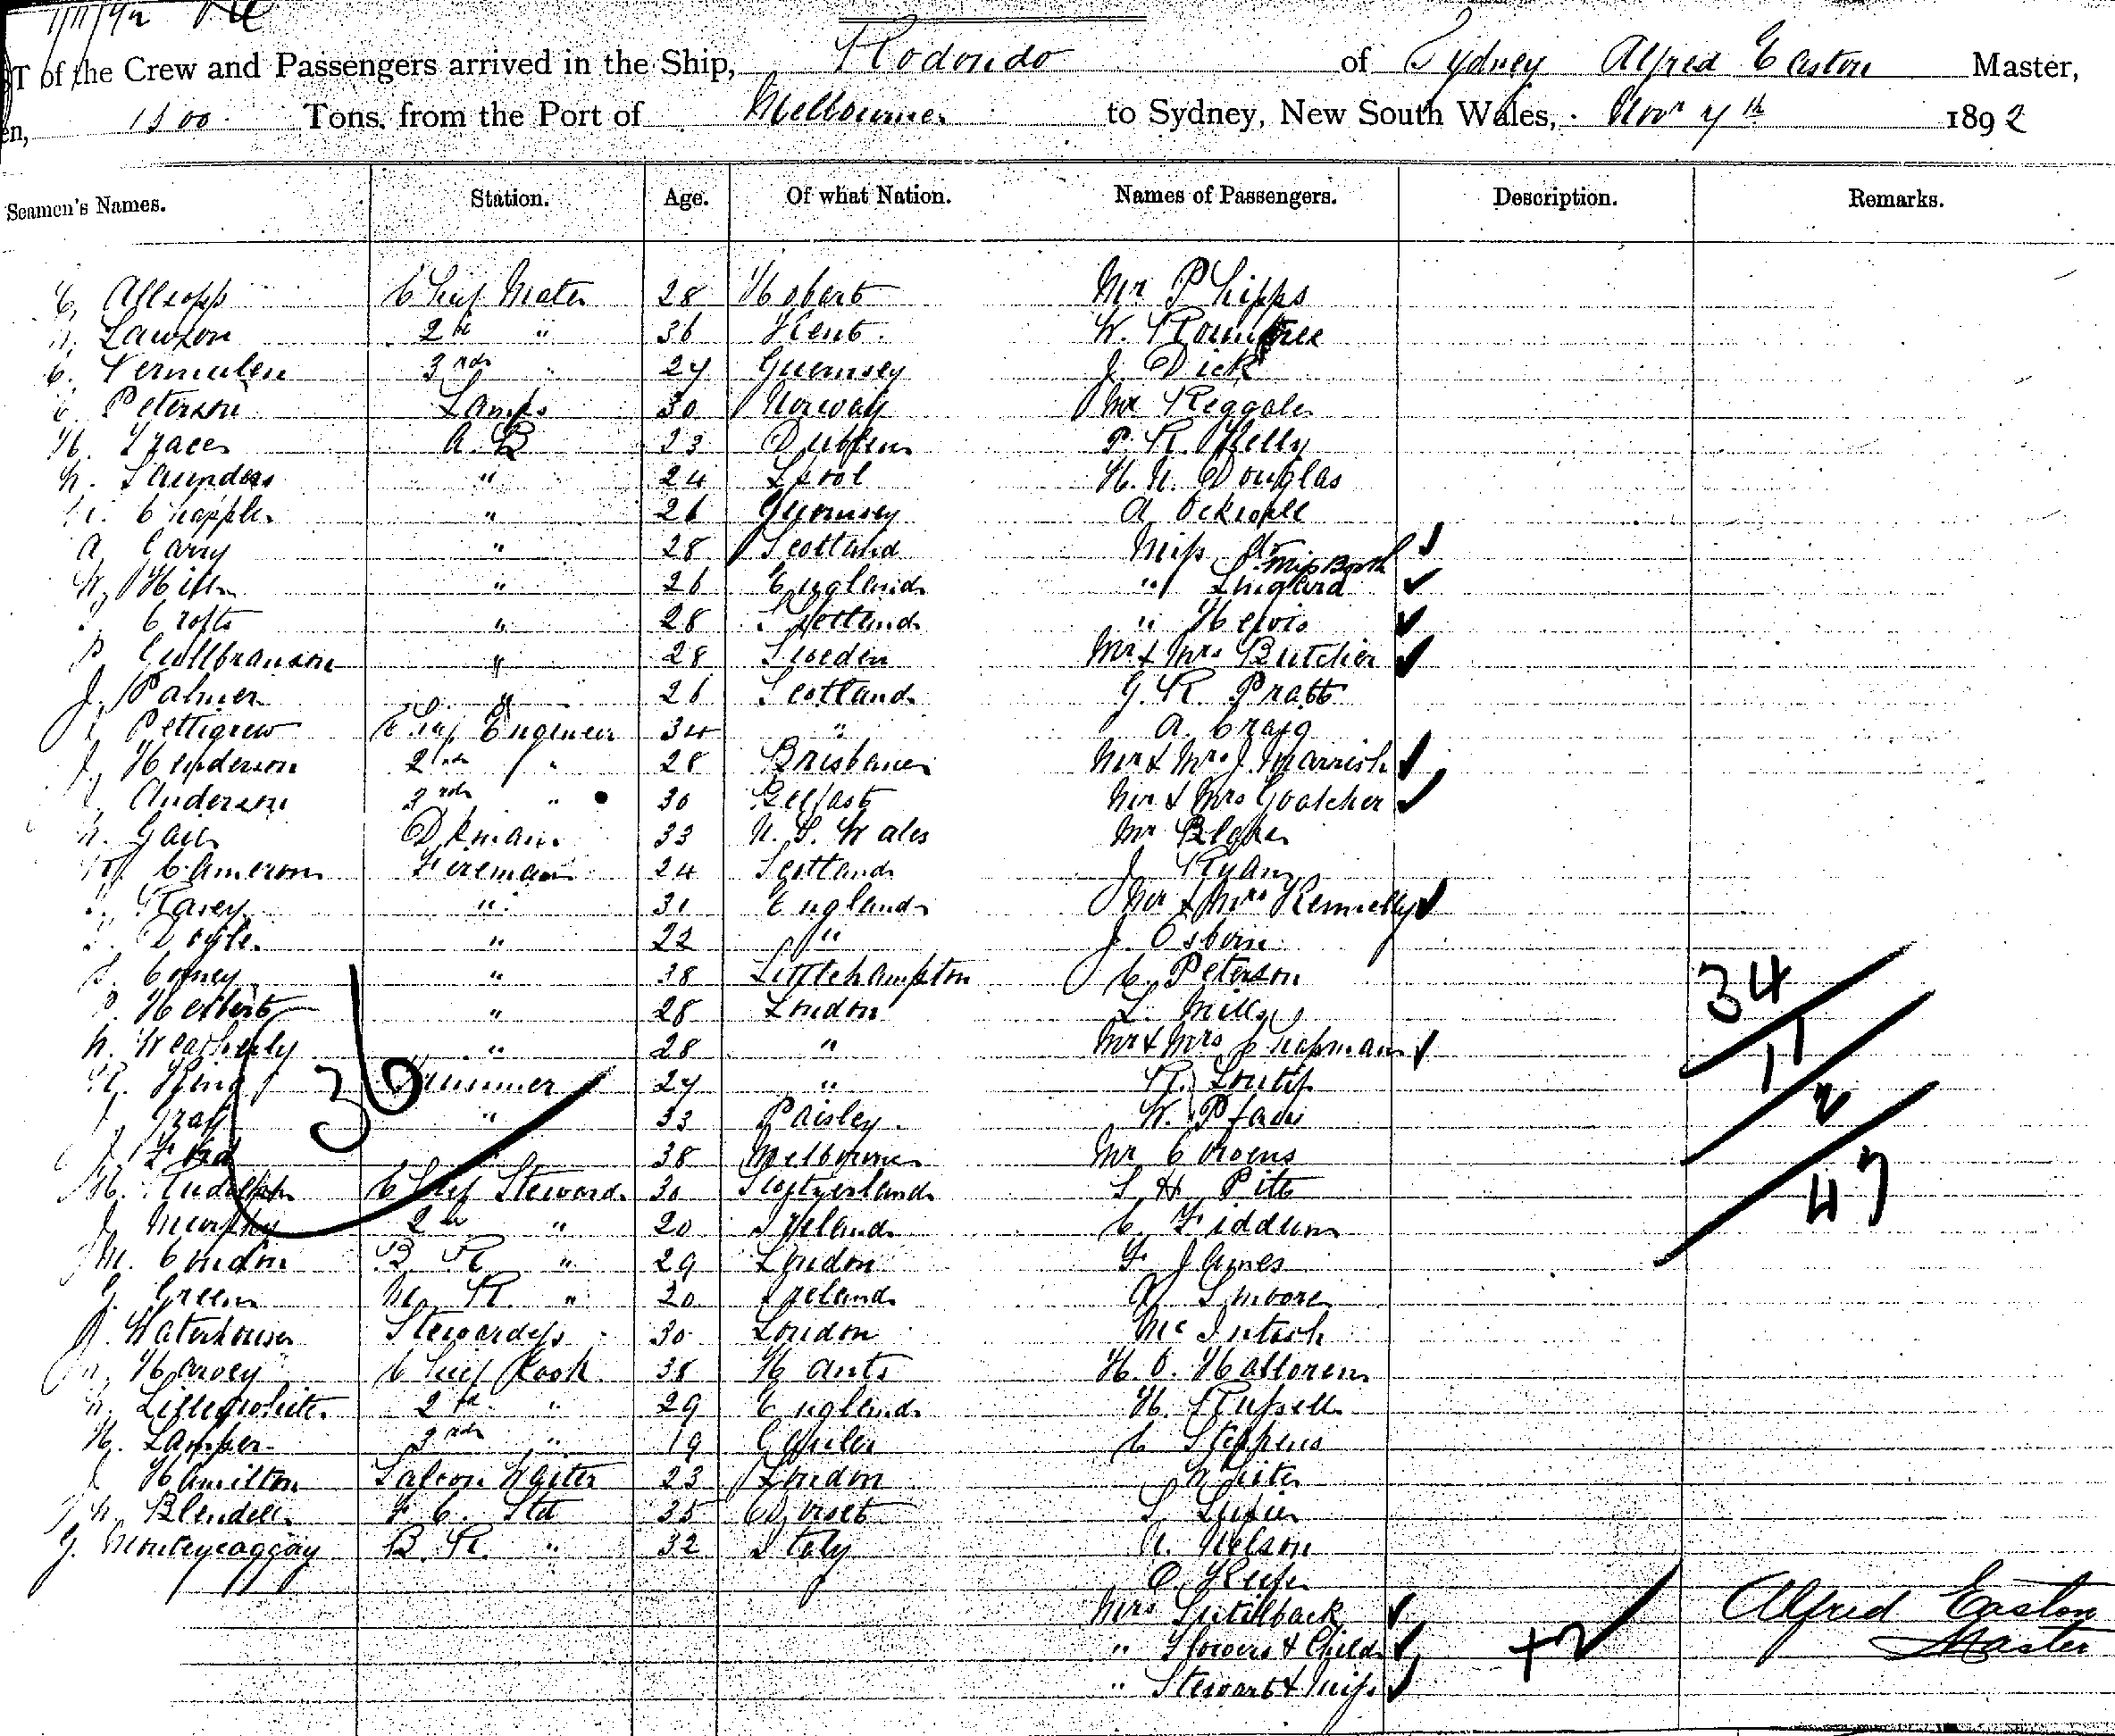 T of the Crew and Passengers arrived in the Ship, Rodondo of Sydney Alfred Easton Master,
en, 1500 Tons, from the Port of Melbourne to Sydney, New South Wales, Novr 7th 1892
Seamen's Names. Station. Age. Of what Nation. Names of Passengers. Description. Remarks.
C. Allsopp Chief Mate 28 Hobart Mr Phipps
Lawson 2nd " 36 Kent. W. Rowntree
C. Vermulen 3rd " 27 Guernsey J. Dick
Peterson Lamps 30 Norway Mr Reggale
H. A.B 23 Dublin P. R. Kelly
W. Saunders " 24 Lpool H. N. Douglas
Chapple " 26 Guernsey A
A. Carry " 28 Scotland Miss Miss Booth
W. Hill " 26 England " Lingard
Crofts " 28 Scotland "
P Gullbranson " 28 Sweden Mr & Mrs Butcher
J. Palmer " 26 Scotland G. R. Pratt
Pettigrew Chief Engineer 34 " A. Craig
J. Henderson 2nd " 28 Brisbane Mr & Mrs J. Marrish
Anderson 3rd " 30 Belfast Mr & Mrs Goatcher
Dkman 33 N. S. Wales Mr Blake
Cameron Fireman 24 Scotland J Ryan
" 31 England Mr & Mrs Kennelly
Doyle " 22 " J. Osborn
Coney " 38 Littlehampton C. Peterson
Herbert " 28 London L. Mills
W. Weatherly " 28 " Mr & Mrs Chapman
R. King Trimmer 27 " R.
Gray " 33 Paisley. W.
Ford 38 Melbourne Mr Owens
Rudolph Chief Steward 30 Switzerland S H Pitt
J Murphy 2nd " 20 Ireland C.
M. Condon B R " 29 London F James
G. Green M. R. " 20 Ireland A
Waterhouse Stewardess 30 London McIntosh
Harvey Chief Cook 38 Hants H. O. Halloren
Lillywhite 2nd " 29 England H. Russell
H. Lamper 3rd " 19 C Stephens
Hamilton Saloon Waiter 23 London White
W. Blendell F. C. Std 35 Dorset S
G. B. R. " 32 Italy Nelson
O Keefe
Mrs
" Flowers & Child
" Stewart &
36
34
11
2
47
+2
Alfred Easton
Master